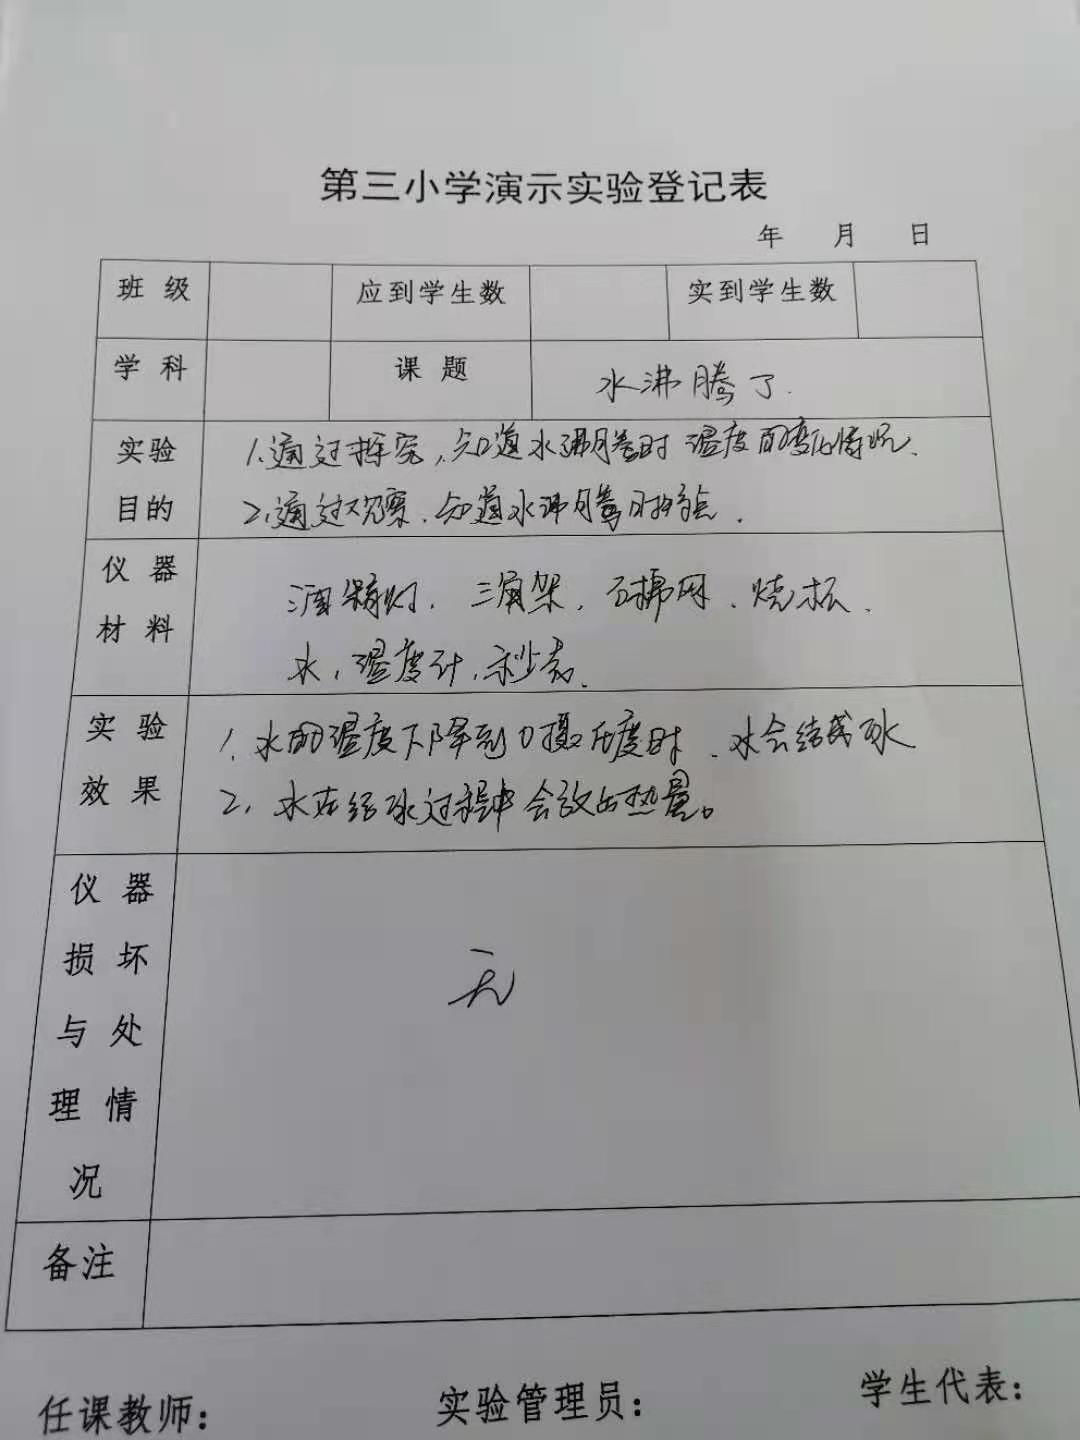 第三小学演示实验登记表
年 月 日
班 级 应到学生数 实到学生数
学 科 课 题 水沸腾了.
实验 1.通过探究,知道水沸腾时温度的变化情况.
目的 2.通过观察,知道水沸腾时特点.
仪 器 酒精灯. 三角架, 石棉网. 烧杯.
材 料 水, 温度计, 秒表.
实 验 1. 水的温度下降到0摄氏度时.水会结成冰
效 果 2. 水在结冰过程中会放出热量。
仪 器
损 坏
与 处 无
理 情
况
备注
任课教师: 实验管理员: 学生代表: